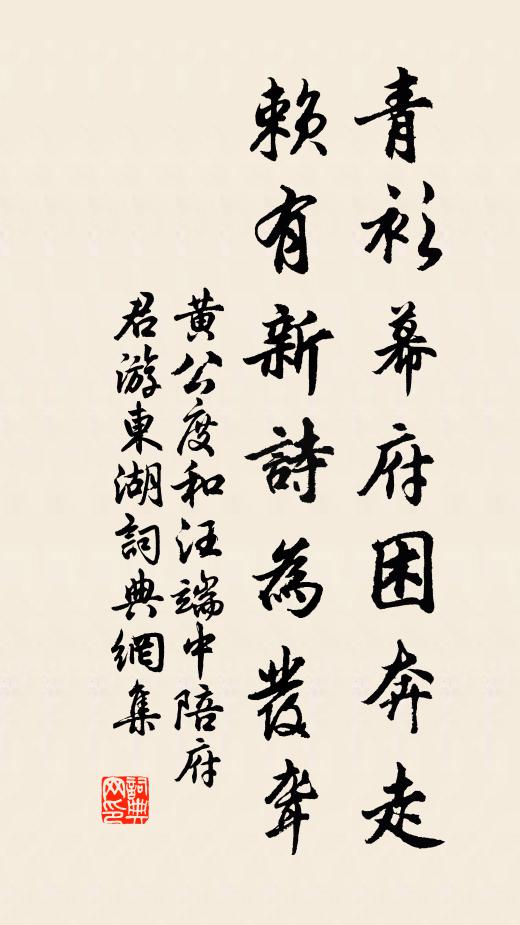 青衫幕府困奔走
賴有新詩為發聾
黃公度和汪端中陪府
君游東湖詞典網集
詞典
网印